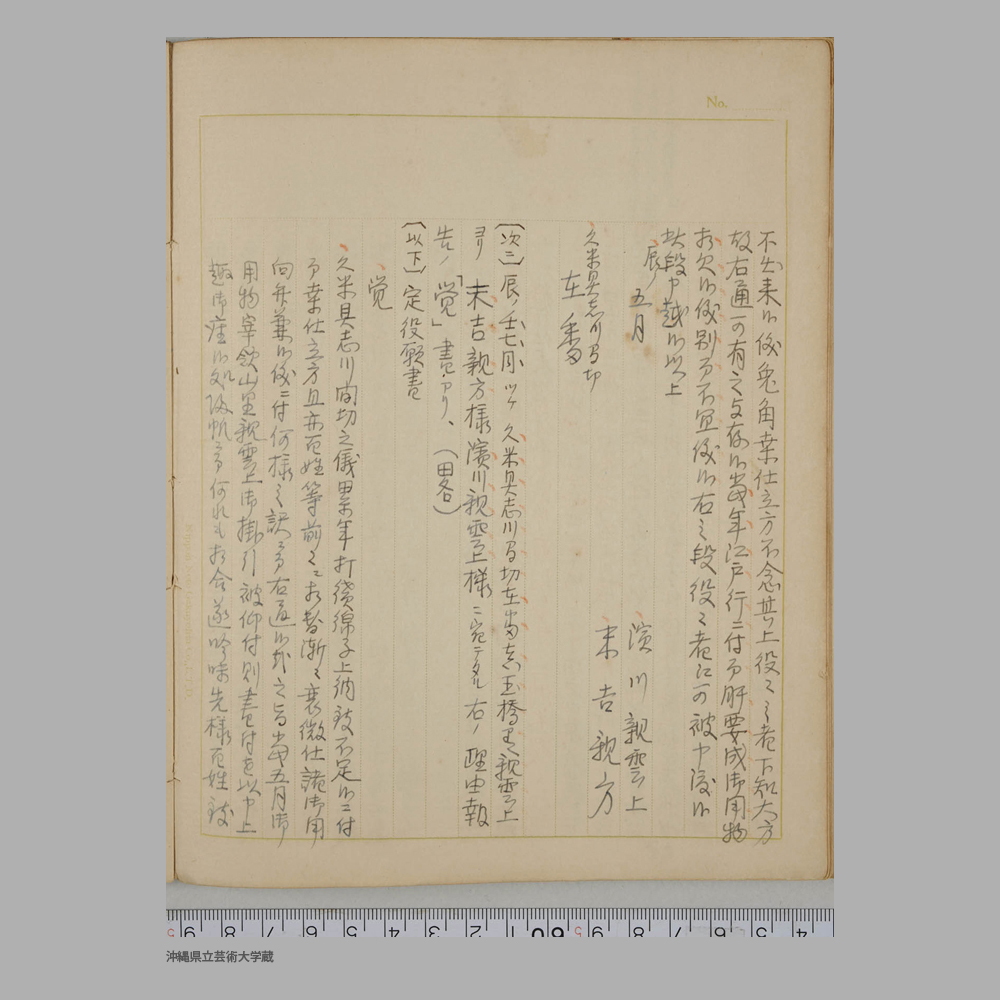 No.
不出来候儀兎角業仕立方不念其上役々之者下知大方
故右通可有之与存候当年江戸行ニ付而肝要成御用物
相欠候儀別而不宜儀候右之段役々者江可被申渡候
此段申越候以上
辰ノ五月
濱川親雲上
末吉親方
久米具志川間切
在番
(次ニ)辰ノ七月 久米具志川間切在番 玉橋 親雲上
ヨリ 末吉親方様濱川親雲上様ニ宛テタル右ノ理由報
告ノ「覚」書アリ、(略)
(以下)定役願書
覚
久米具志川間切之儀累年打続綿子上納致不足候ニ付
而業仕立方且亦百姓等前々ニ相替漸々衰微仕諸御用
向弁兼候儀ニ付何様之訳ニ而右通候哉之旨当五月御
用物宰領山里親雲上御掛引被仰付別書付を以申上
趣御座候処帰帆ニ而何れも相合遂吟味先様百姓致
沖縄県立芸術大学蔵